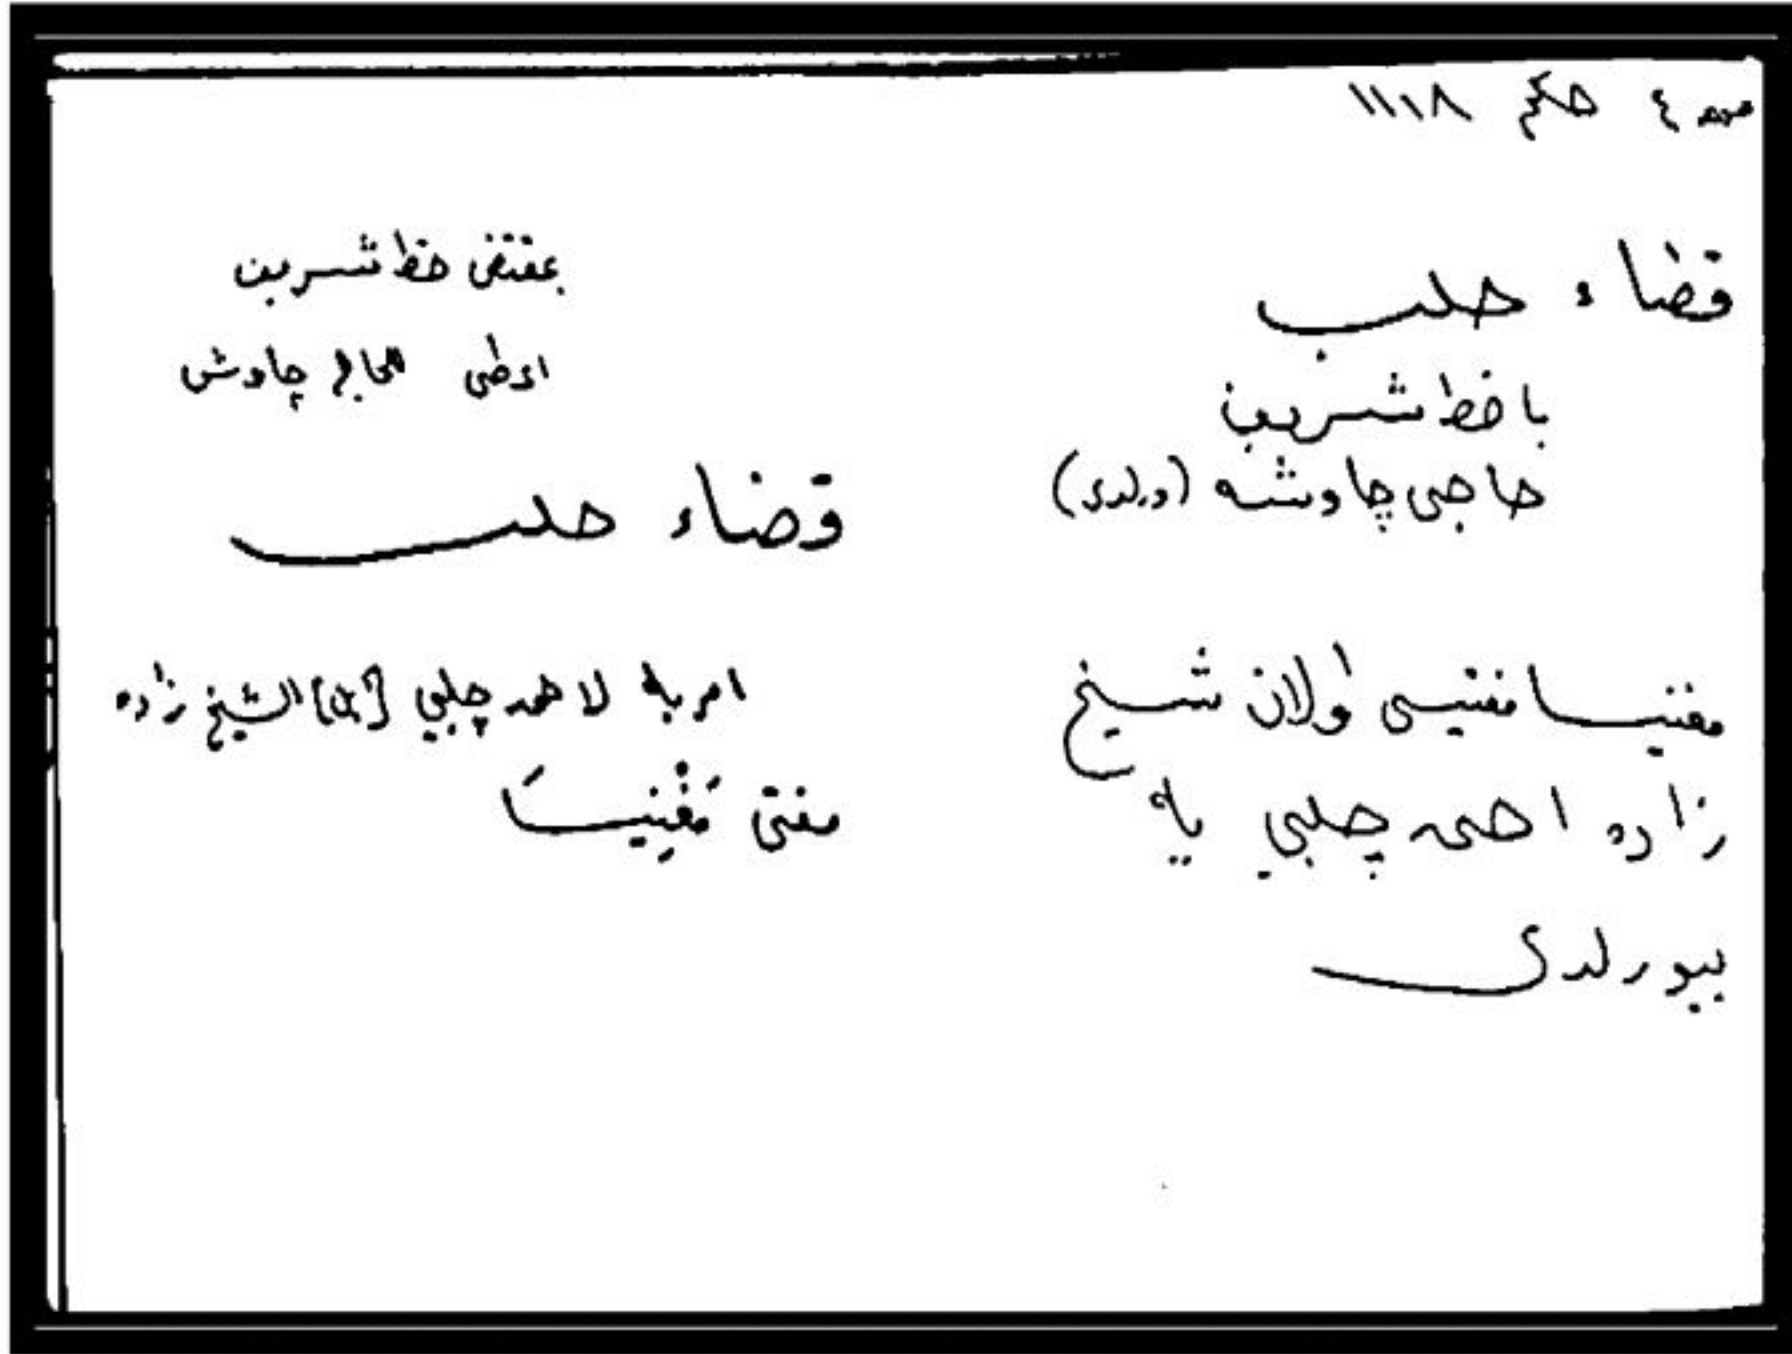 ٤ حكم ١١١٨
قضاء حلب
با خط شريف
حاجى چاوشه (ورلدى)
مغنيسا مفتيسى اولان شيخ
زاده احمد چلبي يه
بيورلدى
بمقتضى خط شريف
اعطى الحاج چاوش
قضاء حلب
امر به لاحمد چلبي الشيخ زاده
مفتى مَغْنِيسَا